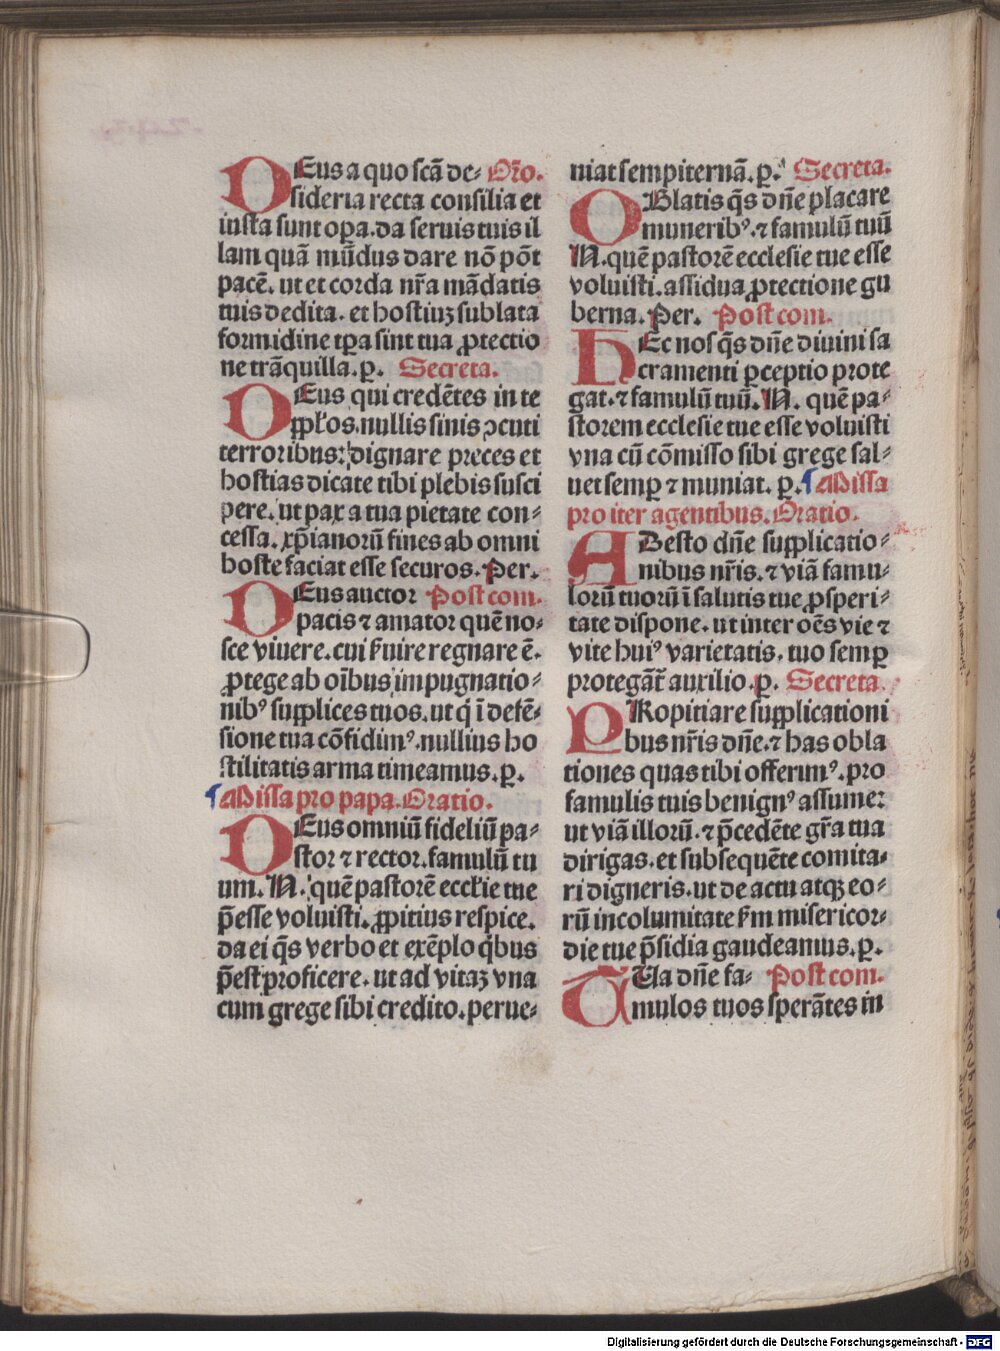 DEus a quo scā de- Oro.
sideria recta consilia et
iusta sunt oꝑa. da seruis tuis il
lam quā mūdus dare nō pōt
pacē. ut et corda nr̄a mādatis
tuis dedita. et hostiuꝫ sublata
formidine tꝑa sint tua ꝓtectio
ne trāquilla. ꝑ. Secreta.
DEus qui credētes in te
ꝓpl'os. nullis sinis ↄcuti
terroribus: dignare preces et
hostias dicate tibi plebis susci
pere. ut pax a tua pietate con-
cessa. xp̄ianorū fines ab omni
hoste faciat esse securos. Per.
DEus auctor Post com.
pacis ⁊ amator quē no-
sce viuere. cui ẜuire regnare ē.
ꝓtege ab oībus impugnatio-
nibꝰ supplices tuos. ut q̇ ī defē-
sione tua cōfidimꝰ. nullius ho
stilitatis arma timeamus. ꝑ.
Missa pro papa. Oratio.
DEus omniū fideliū pa-
stor ⁊ rector. famulū tu
um. N. quē pastorē eccl'ie tue
p̄esse voluisti. ꝓpitius respice.
da ei q̄s verbo et exēplo q̇bus
p̄est proficere. ut ad vitaꝫ vna
cum grege sibi credito. perue-
niat sempiternā. ꝑ. Secreta.
OBlatis q̄s dn̄e placare
muneribꝰ. ⁊ famulū tuū
N. quē pastorē ecclesie tue esse
voluisti. assidua ꝓtectione gu
berna. Per. Post com.
HEc nos q̄s dn̄e diuini sa
cramenti ꝑceptio prote
gat. ⁊ famulū tuū. N. quē pa-
storem ecclesie tue esse voluisti
vna cū cōmisso sibi grege sal-
uet semꝑ ⁊ muniat. ꝑ. Missa
pro iter agentibus. Oratio.
ADesto dn̄e supplicatio-
nibus nr̄is. ⁊ viā famu-
lorū tuorū ī salutis tue ꝓsperi-
tate dispone. ut inter oēs vie ⁊
vite huiꝰ varietatis. tuo semꝑ
protegāt̄ auxilio. ꝑ. Secreta.
PRopitiare supplicationi
bus nr̄is dn̄e. ⁊ has obla
tiones quas tibi offerimꝰ. pro
famulis tuis benignꝰ assume:
ut viā illorū. ⁊ p̄cedēte gr̄a tua
dirigas. et subsequēte comita-
ri digneris. ut de actu atqꝫ eo-
rū incolumitate ẜm misericor-
die tue p̄sidia gaudeamus. ꝑ.
TUa dn̄e fa- Post com.
mulos tuos sperātes in
Digitalisierung gefördert durch die Deutsche Forschungsgemeinschaft - DFG